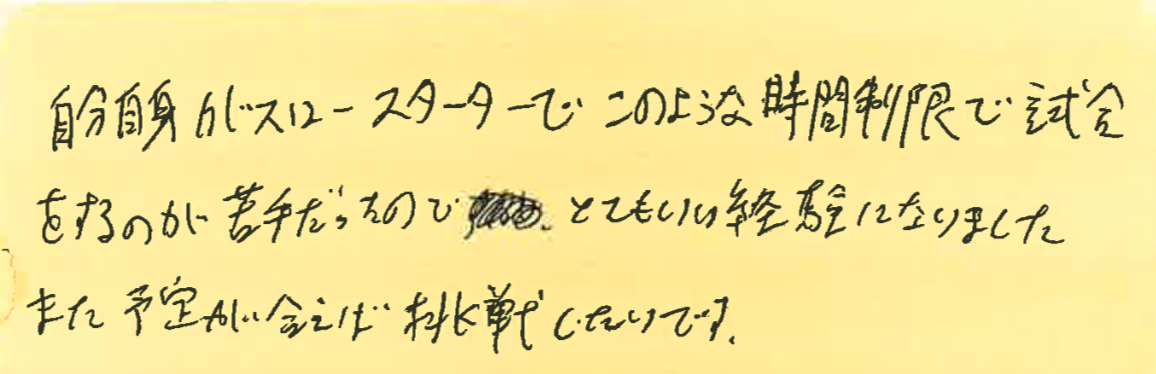 自分自身がスロースターターで このような時間制限で試合
をするのが苦手だったので とてもいい経験になりました
また予定が合えば挑戦したいです.